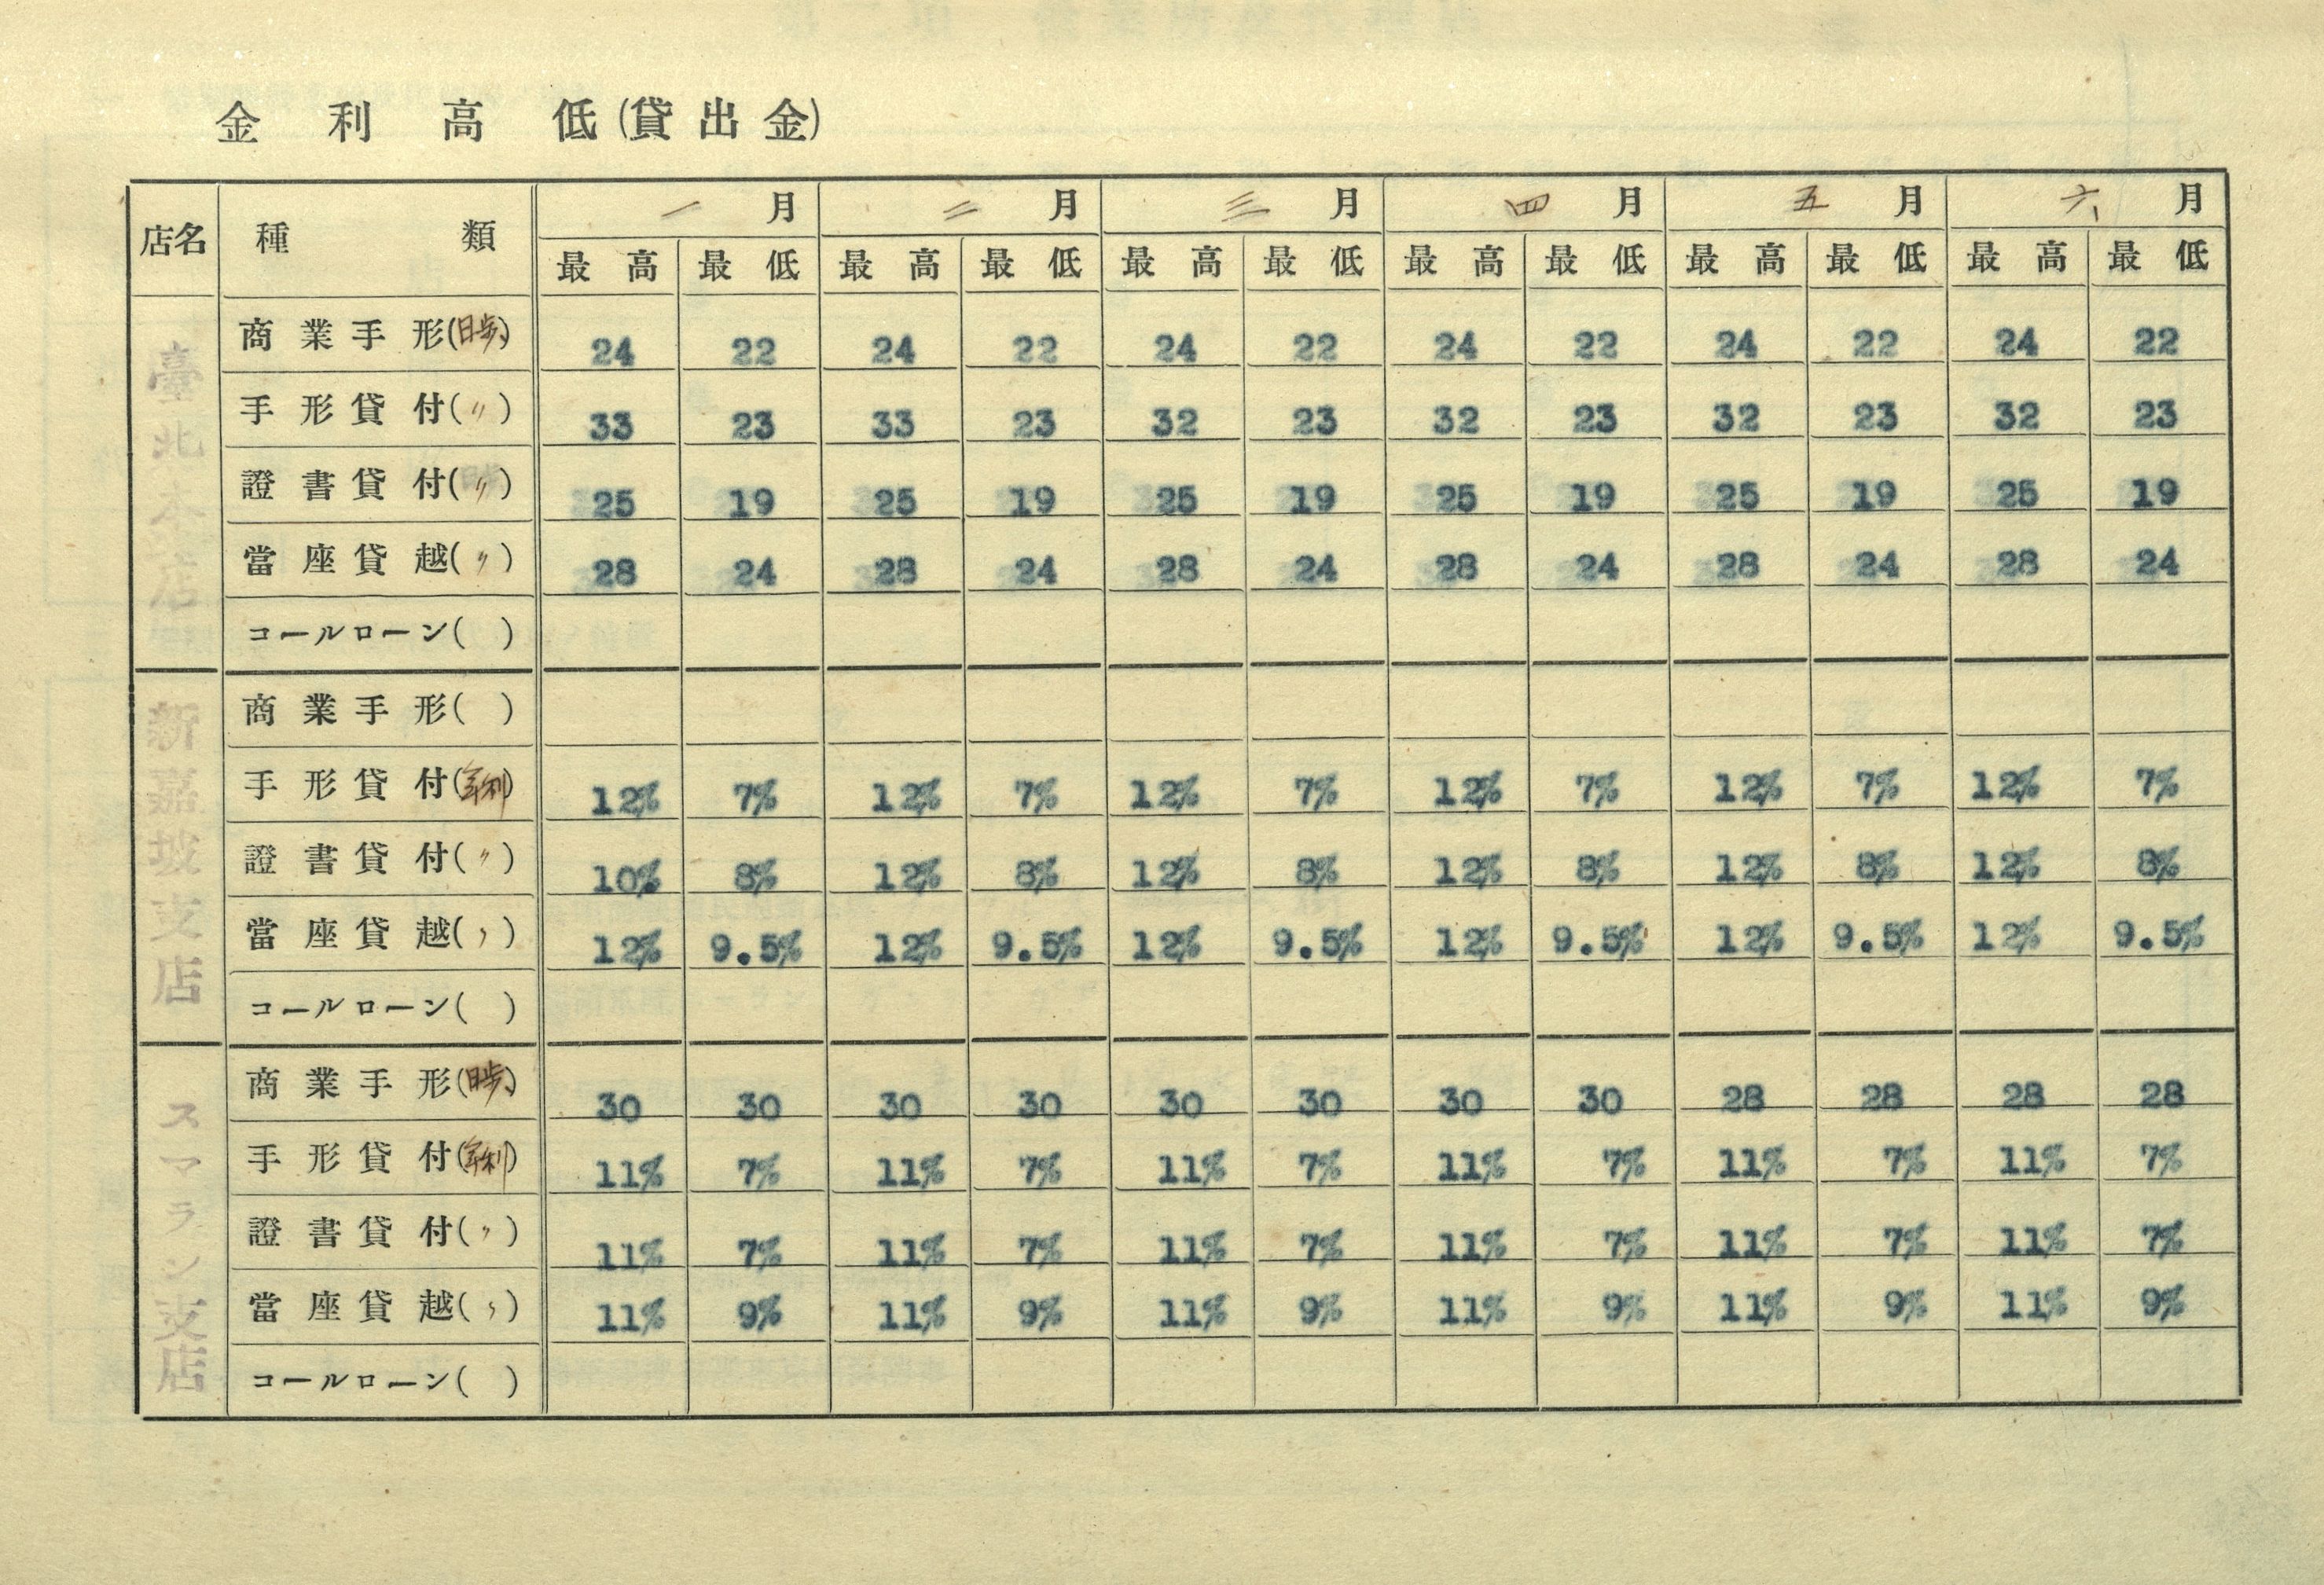 金利高低(貸出金)
店名 種類 一月 二月 三月 四月 五月 六月
最高 最低 最高 最低 最高 最低 最高 最低 最高 最低 最高 最低
臺北本店
商業手形(日歩) 24 22 24 22 24 22 24 22 24 22 24 22
手形貸付(〃) 33 23 33 23 32 23 32 23 32 23 32 23
證書貸付(〃) 25 19 25 19 25 19 25 19 25 19 25 19
當座貸越(〃) 28 24 28 24 28 24 28 24 28 24 28 24
コールローン( )
新嘉坡支店
商業手形( )
手形貸付(年利) 12% 7% 12% 7% 12% 7% 12% 7% 12% 7% 12% 7%
證書貸付(〃) 10% 8% 12% 8% 12% 8% 12% 8% 12% 8% 12% 8%
當座貸越(〃) 12% 9.5% 12% 9.5% 12% 9.5% 12% 9.5% 12% 9.5% 12% 9.5%
コールローン( )
スマラン支店
商業手形(日歩) 30 30 30 30 30 30 30 30 28 28 28 28
手形貸付(年利) 11% 7% 11% 7% 11% 7% 11% 7% 11% 7% 11% 7%
證書貸付(〃) 11% 7% 11% 7% 11% 7% 11% 7% 11% 7% 11% 7%
當座貸越(〃) 11% 9% 11% 9% 11% 9% 11% 9% 11% 9% 11% 9%
コールローン( )